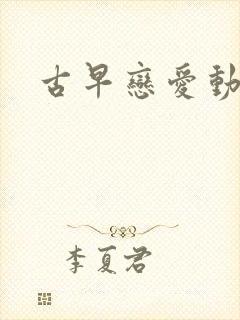 古早戀愛動
李夏君